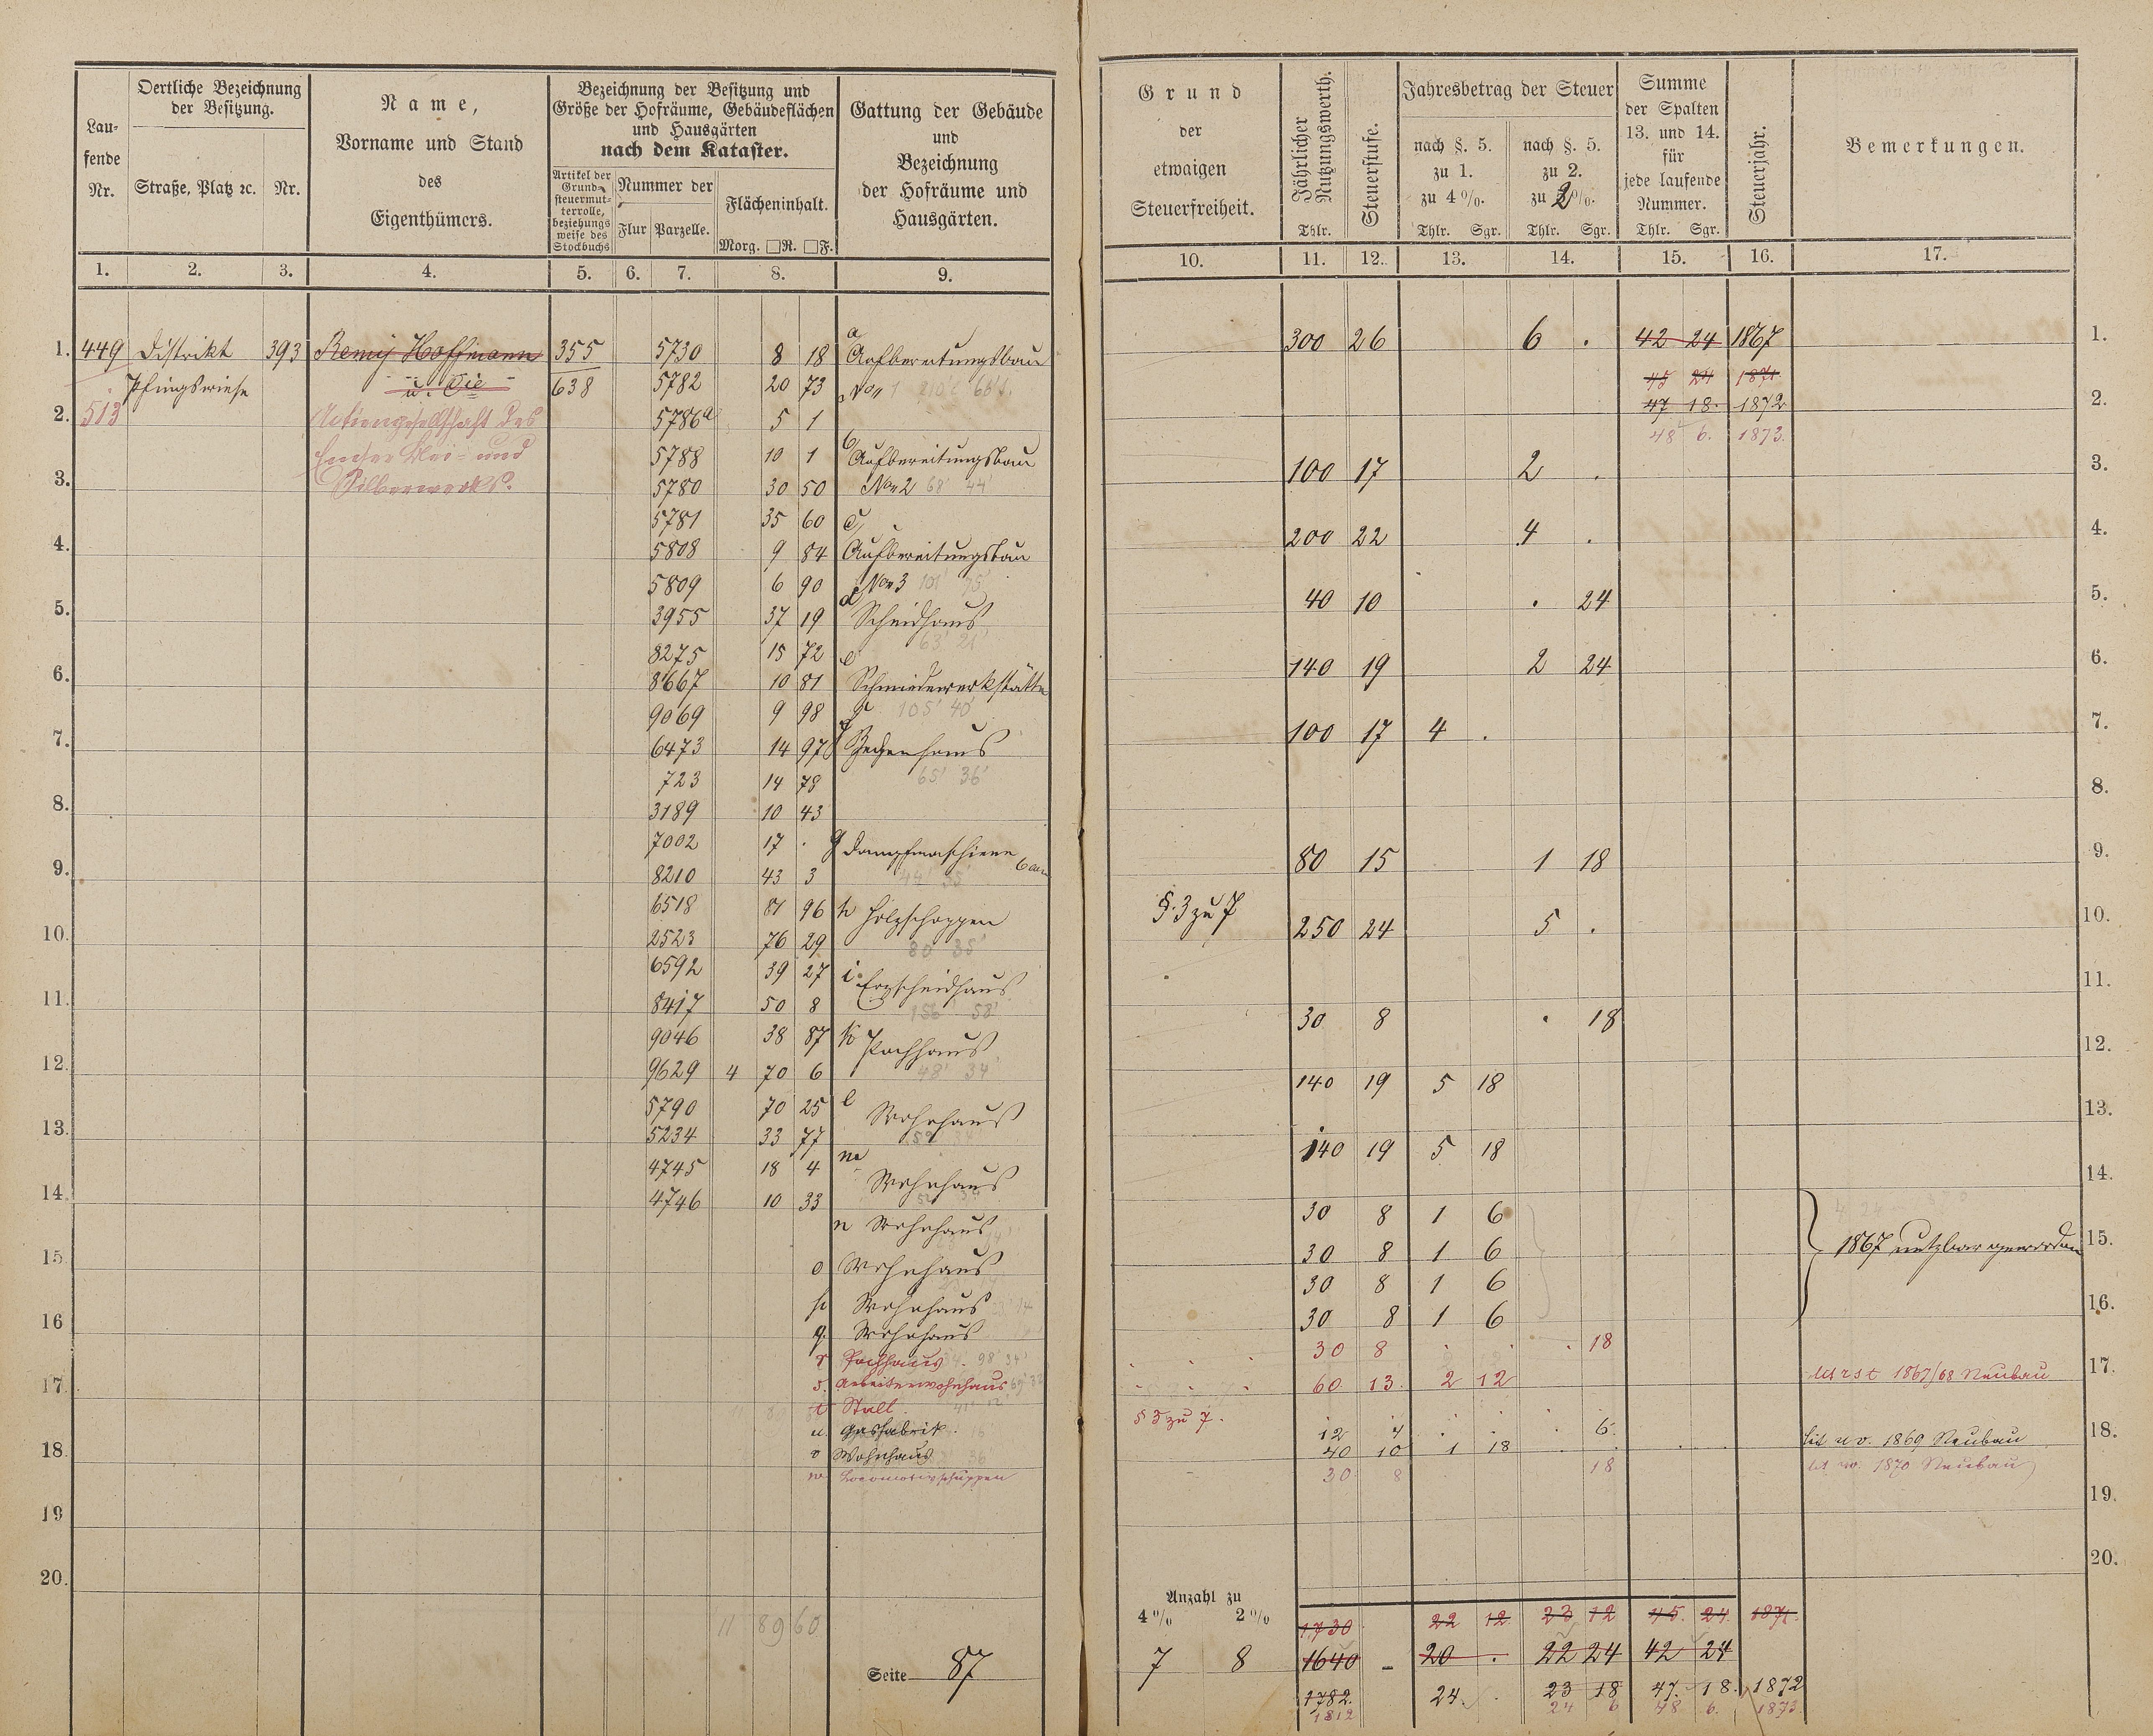 Laufende Nr.
Oertliche Bezeichnung der Besitzung.
Straße, Platz ꝛc.
Nr.
Name,
Vorname und Stand
des
Eigenthümers.
Bezeichnung der Besitzung und
Größe der Hofräume, Gebäudeflächen
und Hausgärten
nach dem Kataster.
Artikel der Grundsteuermutterrolle, beziehungsweise des Stockbuchs
Nummer der
Flur Parzelle.
Flächeninhalt.
Morg. □R. □F.
Gattung der Gebäude
und
Bezeichnung
der Hofräume und
Hausgärten.
1. 2. 3. 4. 5. 6. 7. 8. 9.
449 Distrikt 393 Remy Hoffmann 355 5730 8 18 a Aufbereitungsbau
Pfingswiese u. Cie 638 5782 20 73 No 1
513 Actiengesellschaft des 5786a 5 1
Emser Blei- und 5788 10 1 b Aufbereitungsbau
Silberwerks. 5780 30 50 No 2 68' 44'
5781 35 60 c
5808 9 84 Aufbereitungsbau
5809 6 90 No 3
3955 37 19 d Scheidhaus
63' 21'
8275 15 72 e
8667 10 81 Schmiedewerkstätte
9069 9 98 105' 40'
6473 14 97 f Zechenhaus
723 14 78 65' 36'
3189 10 43
7002 17 . g Dampfmaschinenbau
8210 43 3 44' 35'
6518 81 96 h Holzschoppen
2523 76 29 80' 35'
6592 39 27 i Erzscheidhaus
8417 50 8 156' 58'
9046 38 87 k Pochhaus
9629 4 70 6 48' 34'
5790 70 25 l Wohnhaus
5234 33 77
4745 18 4 m Wohnhaus
4746 10 33
n Wohnhaus
o Wohnhaus
p Wohnhaus
q Wohnhaus
r Pochhaus. 98' 34'
s. Arbeiterwohnhaus
t Stall.
u. Gasfabrik.
v Wohnhaus
w Locomotivschuppen
11 89 60
Seite 87
Grund
der
etwaigen
Steuerfreiheit.
Jährlicher Nutzungswerth.
Thlr.
Steuerstufe.
Jahresbetrag der Steuer
nach §. 5. zu 1. zu 4%.
Thlr. Sgr.
nach §. 5. zu 2. zu 2%.
Thlr. Sgr.
Summe
der Spalten
13. und 14.
für
jede laufende
Nummer.
Thlr. Sgr.
Steuerjahr.
Bemerkungen.
10. 11. 12. 13. 14. 15. 16. 17.
300 26 6 . 42 24 1867
45 24 1871
47 18. 1872
48 6. 1873.
100 17 2 .
200 22 4 .
40 10 . 24
140 19 2 24
100 17 4 .
80 15 1 18
§. 3 zu 7 250 24 5 .
30 8 . 18
140 19 5 18
140 19 5 18
30 8 1 6
30 8 1 6 1867 nutzbar geworden
30 8 1 6
30 8 1 6
30 8 . . . 18
60 13. 2 12 lit r s t 1867/68 Neubau
§ 3 zu 7.
12 4 . . . 6.
40 10 1 18 lit u v. 1869 Neubau
30 8 18 lit w. 1870 Neubau
Anzahl zu
4% 2%
1730 22 12 23 12 45. 24 1871.
7 8 1640 - 20 . 22 24 42 24
1782. 24. 23 18 47. 18. 1872
1812 24 6 48 6. 1873.
1. 2. 3. 4. 5. 6. 7. 8. 9. 10. 11. 12. 13. 14. 15. 16. 17. 18. 19. 20.